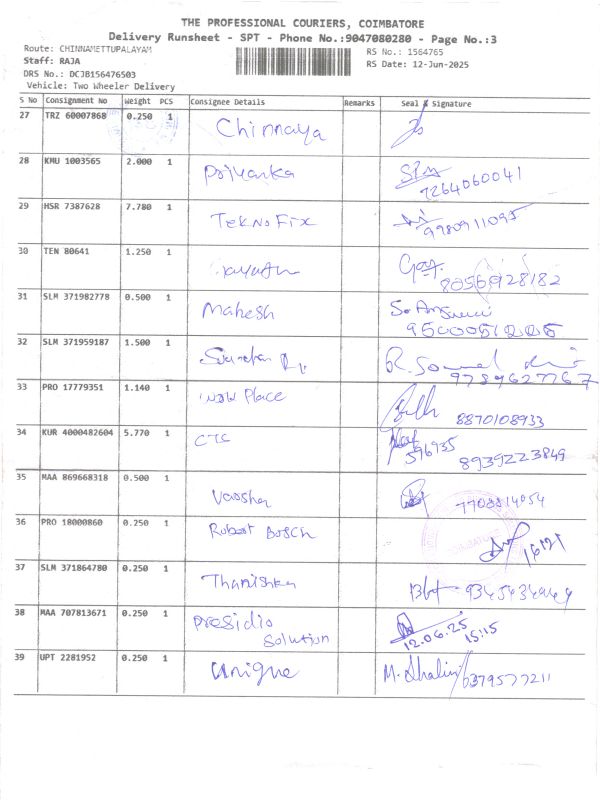 THE PROFESSIONAL COURIERS, COIMBATORE
Delivery Runsheet - SPT - Phone No.:9047080280 - Page No.:3
Route: CHINNAMETTUPALAYAM RS No.: 1564765
Staff: RAJA RS Date: 12-Jun-2025
DRS No.: DCJB156476503
Vehicle: Two Wheeler Delivery
S No Consignment No Weight PCS Consignee Details Remarks Seal & Signature
27 TRZ 60007868 0.250 1 Chinnaya
28 KMU 1003565 2.000 1 Priyanka 7264060041
29 HSR 7387628 7.780 1 TeknoFix 9980911095
30 TEN 80641 1.250 1 8056928182
31 SLM 371982778 0.500 1 Mahesh
32 SLM 371959187 1.500 1 R. 9789627767
33 PRO 17779351 1.140 1 Place 8870108933
34 KUR 4000482604 5.770 1 CTC 596935
8939223849
35 MAA 869668318 0.500 1
36 PRO 18000860 0.250 1 Robert Bosch 16121
37 SLM 371864780 0.250 1 Thanishka
38 MAA 707813671 0.250 1 Presidio
Solution 12.06.25 15:15
39 UPT 2281952 0.250 1 Unique M. Shalini 6379577211